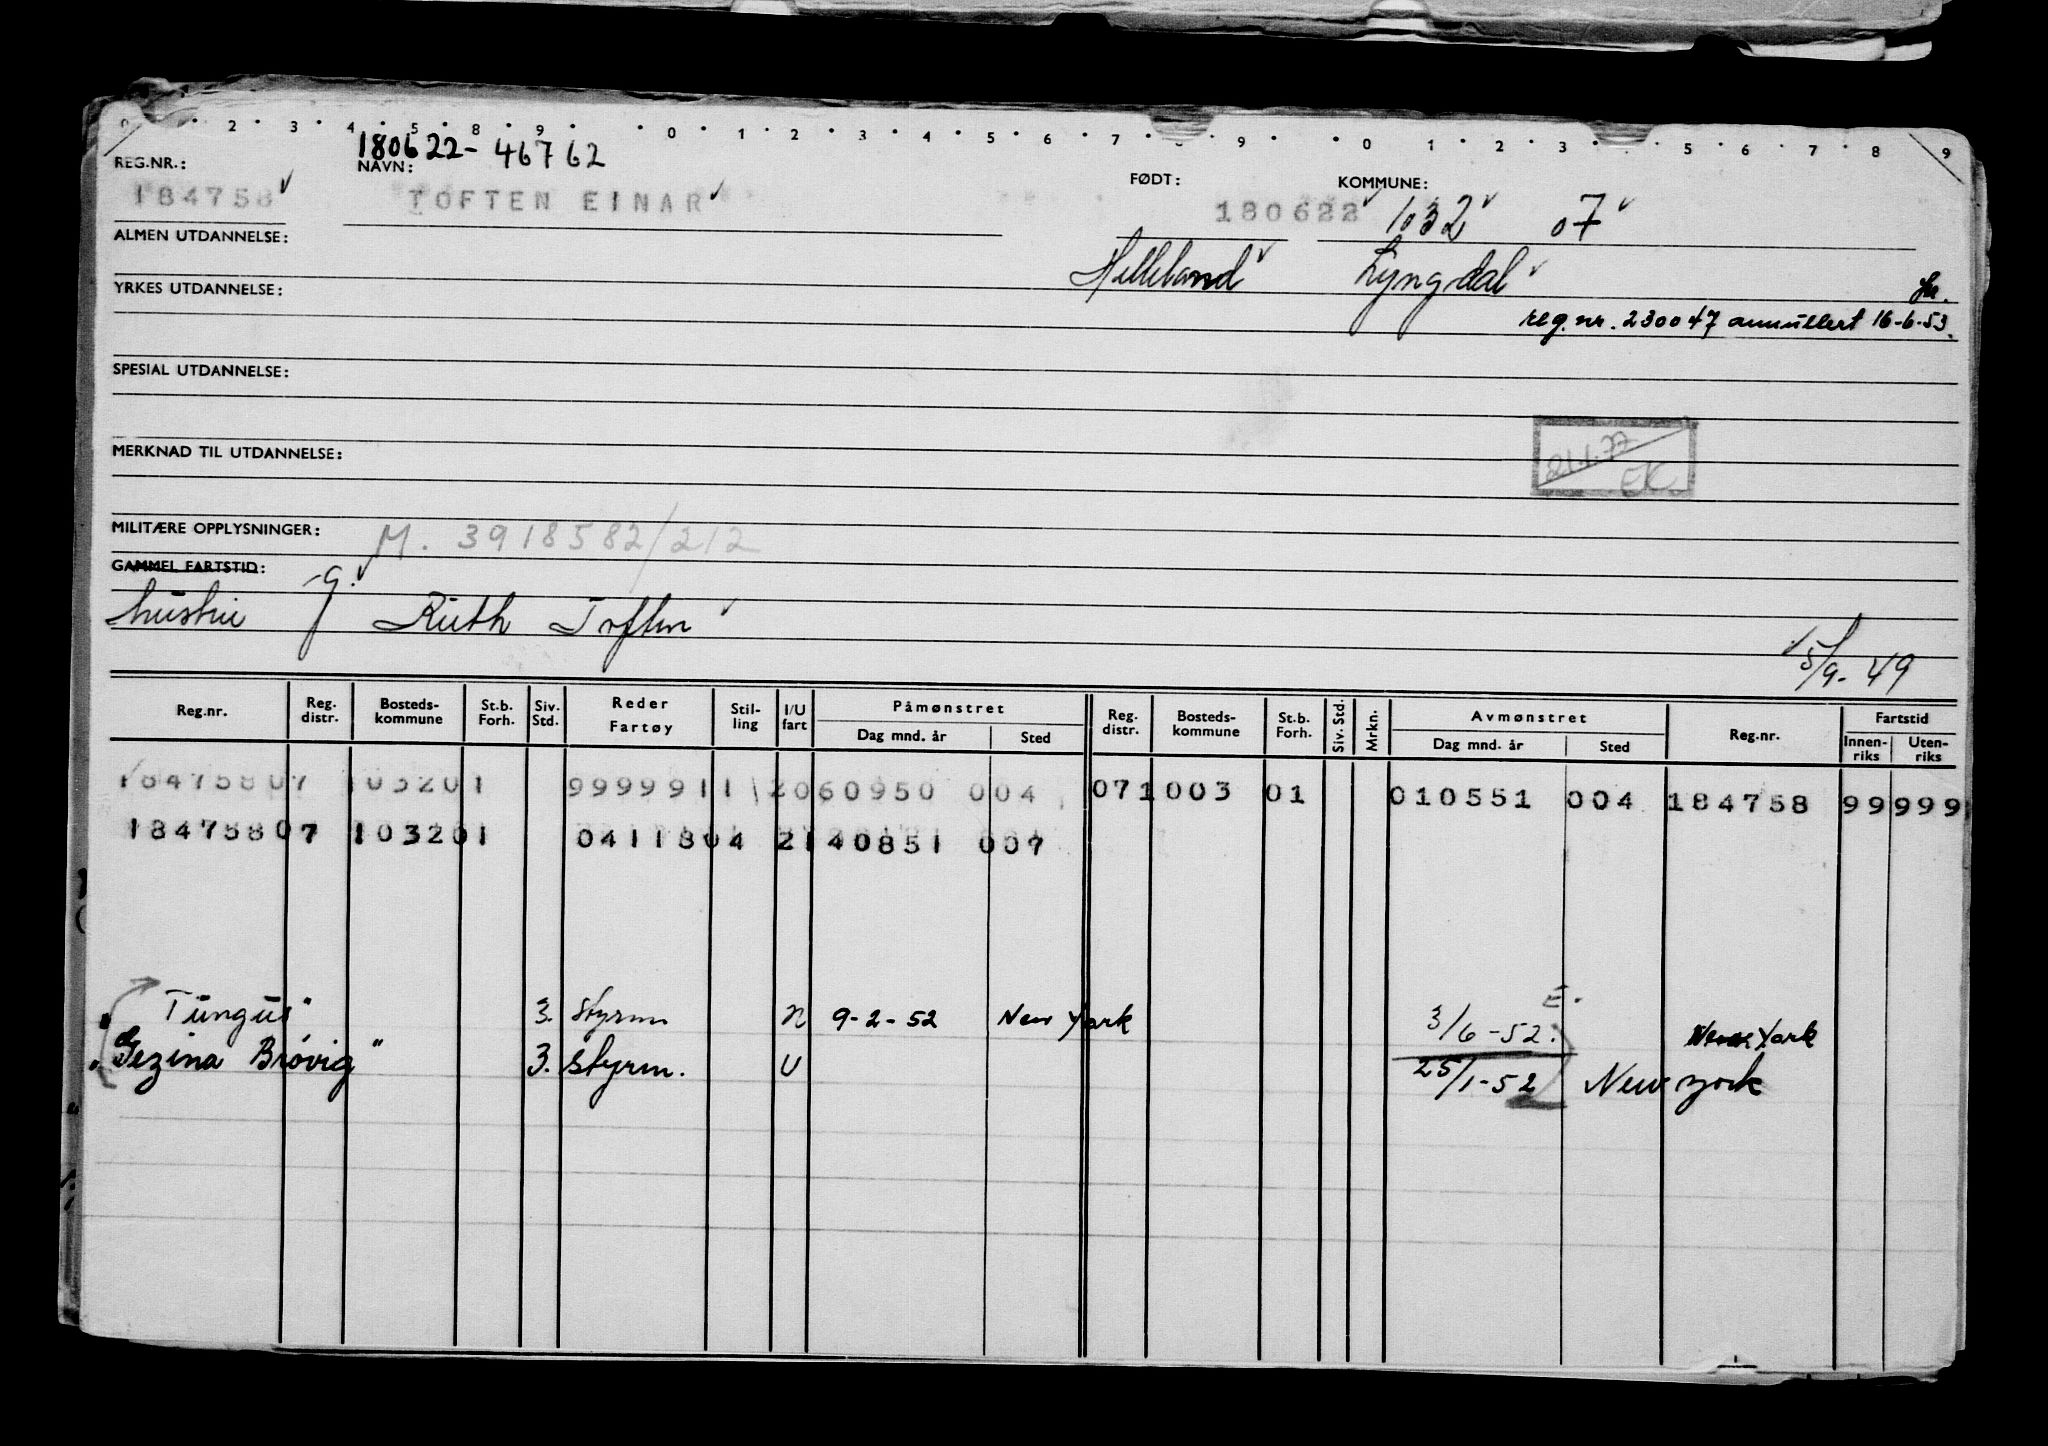 0 . 2 . 3 . 4 . 5 . 8 . 9 . . 0 . 1 . 2 . 3 . 4 . 5 . 6 . 7 . 8 . 9 . . 0 . 1 . 2 . 3 . . 5 . 6 . 7 . 8 . 9
180622-46762
REG.NR.: NAVN: FØDT: KOMMUNE:
184758 TOFTEN EINAR 180622 1032 07
ALMEN UTDANNELSE:
Helleland Lyngdal
YRKES UTDANNELSE:
reg.nr. 230047 annullert 16-6-53.
SPESIAL UTDANNELSE:
MERKNAD TIL UTDANNELSE:
21.1.77
EK
MILITÆRE OPPLYSNINGER: M. 3918582/212
GAMMEL FARTSTID: g.
hustru Ruth Toften
15/9-49
Reg.nr. Reg. distr. Bosteds-kommune St.b. Forh. Siv. Std. Reder Fartøy Stil-ling I/U fart Påmønstret Dag mnd. år Sted Reg. distr. Bosteds-kommune St.b. Forh. Siv. Std. Mrkn. Avmønstret Dag mnd. år Sted Reg.nr. Fartstid Innen-riks Uten-riks
18475807 103201 9999911 2060950 004 071003 01 010551 004 184758 99999
18475807 103201 0411804 2140851 007
"Tungus" 3. styrm U 9-2-52 New York 3/6-52. New York
"Gezina Brøvig" 3. styrm. U 25/1-52 New York